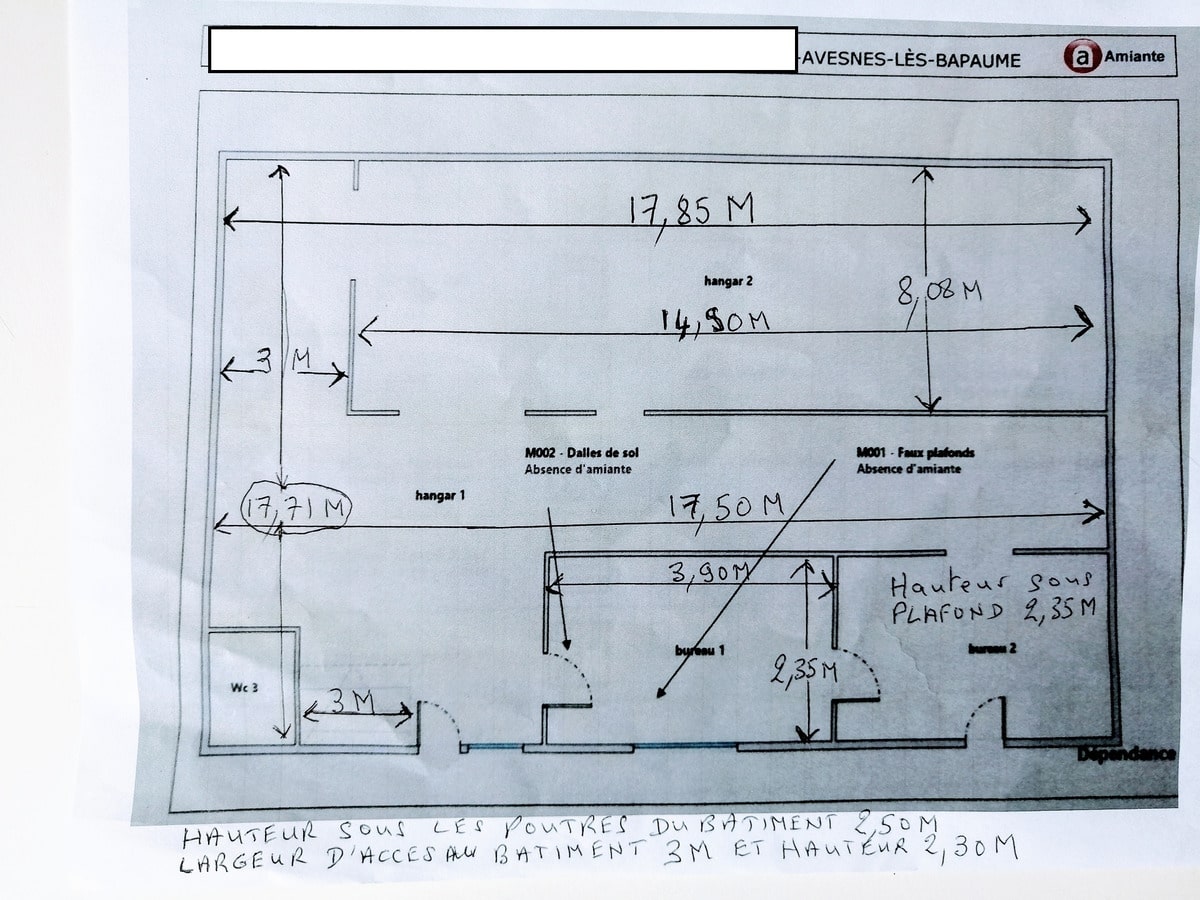 -AVESNES-LÈS-BAPAUME
a Amiante
17,85 M
hangar 2
8,08 M
14,90 M
3 M
M002 - Dalles de sol
Absence d'amiante
M001 - Faux plafonds
Absence d'amiante
hangar 1
17,71 M
17,50 M
3,90 M
Hauteur sous
PLAFOND 2,35 M
bureau 1
bureau 2
2,35 M
Wc 3
3 M
Dépendance
HAUTEUR SOUS LES POUTRES DU BATIMENT 2,50 M
LARGEUR D'ACCES AU BATIMENT 3M ET HAUTEUR 2,30 M